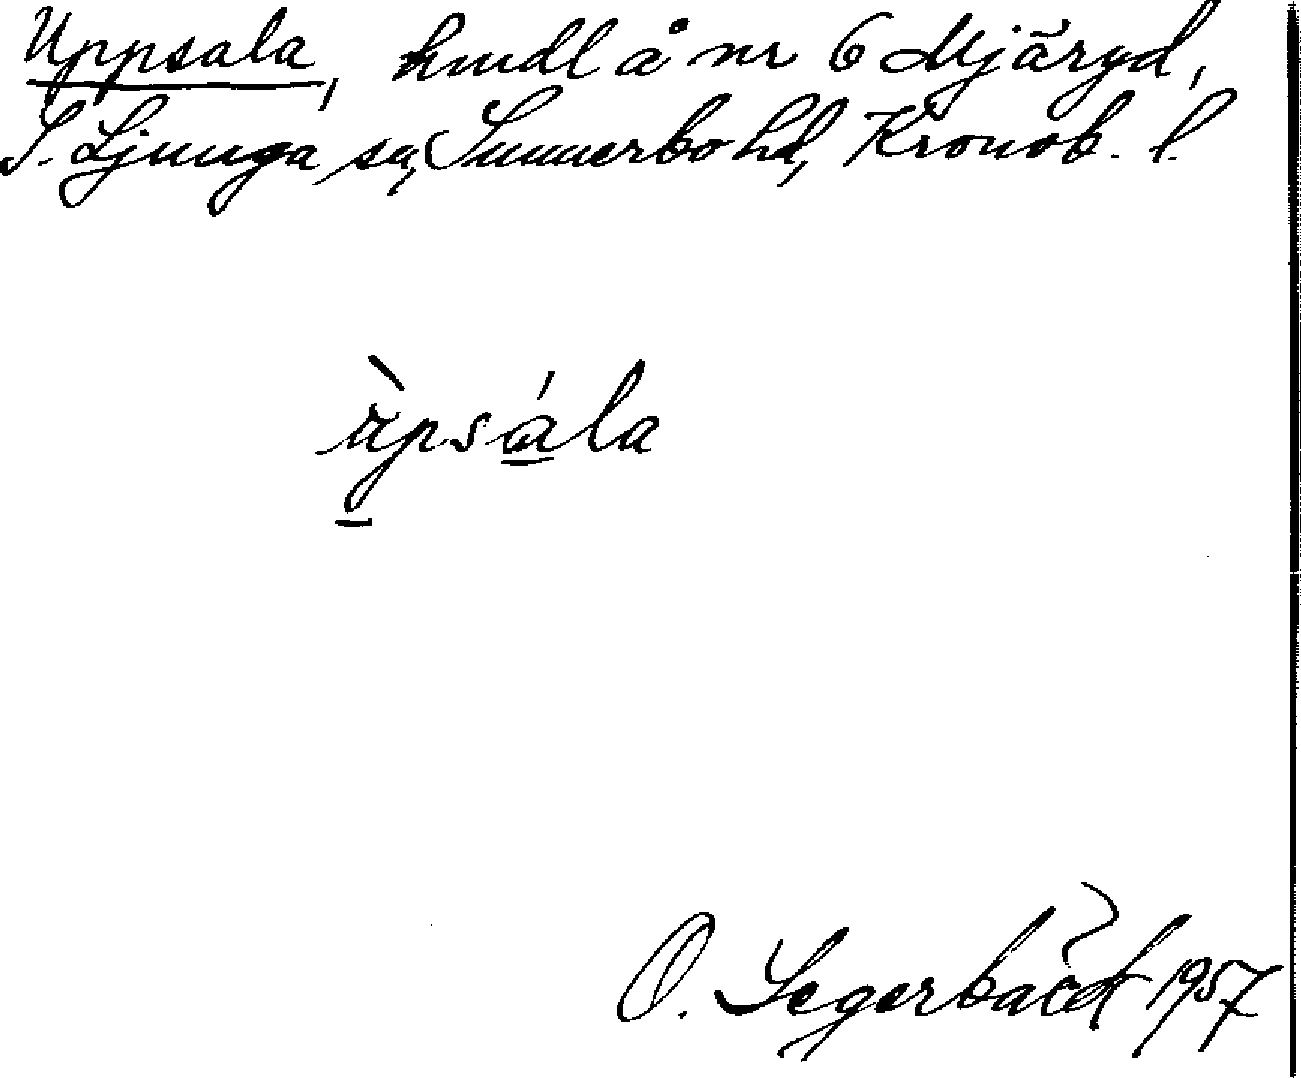 Uppsala, hmdl å nr 6 Mjäryd,
S. Ljunga sn, Sunnerbo hd, Kronob. l.
ə̀psála
O. Segerbäck 1957